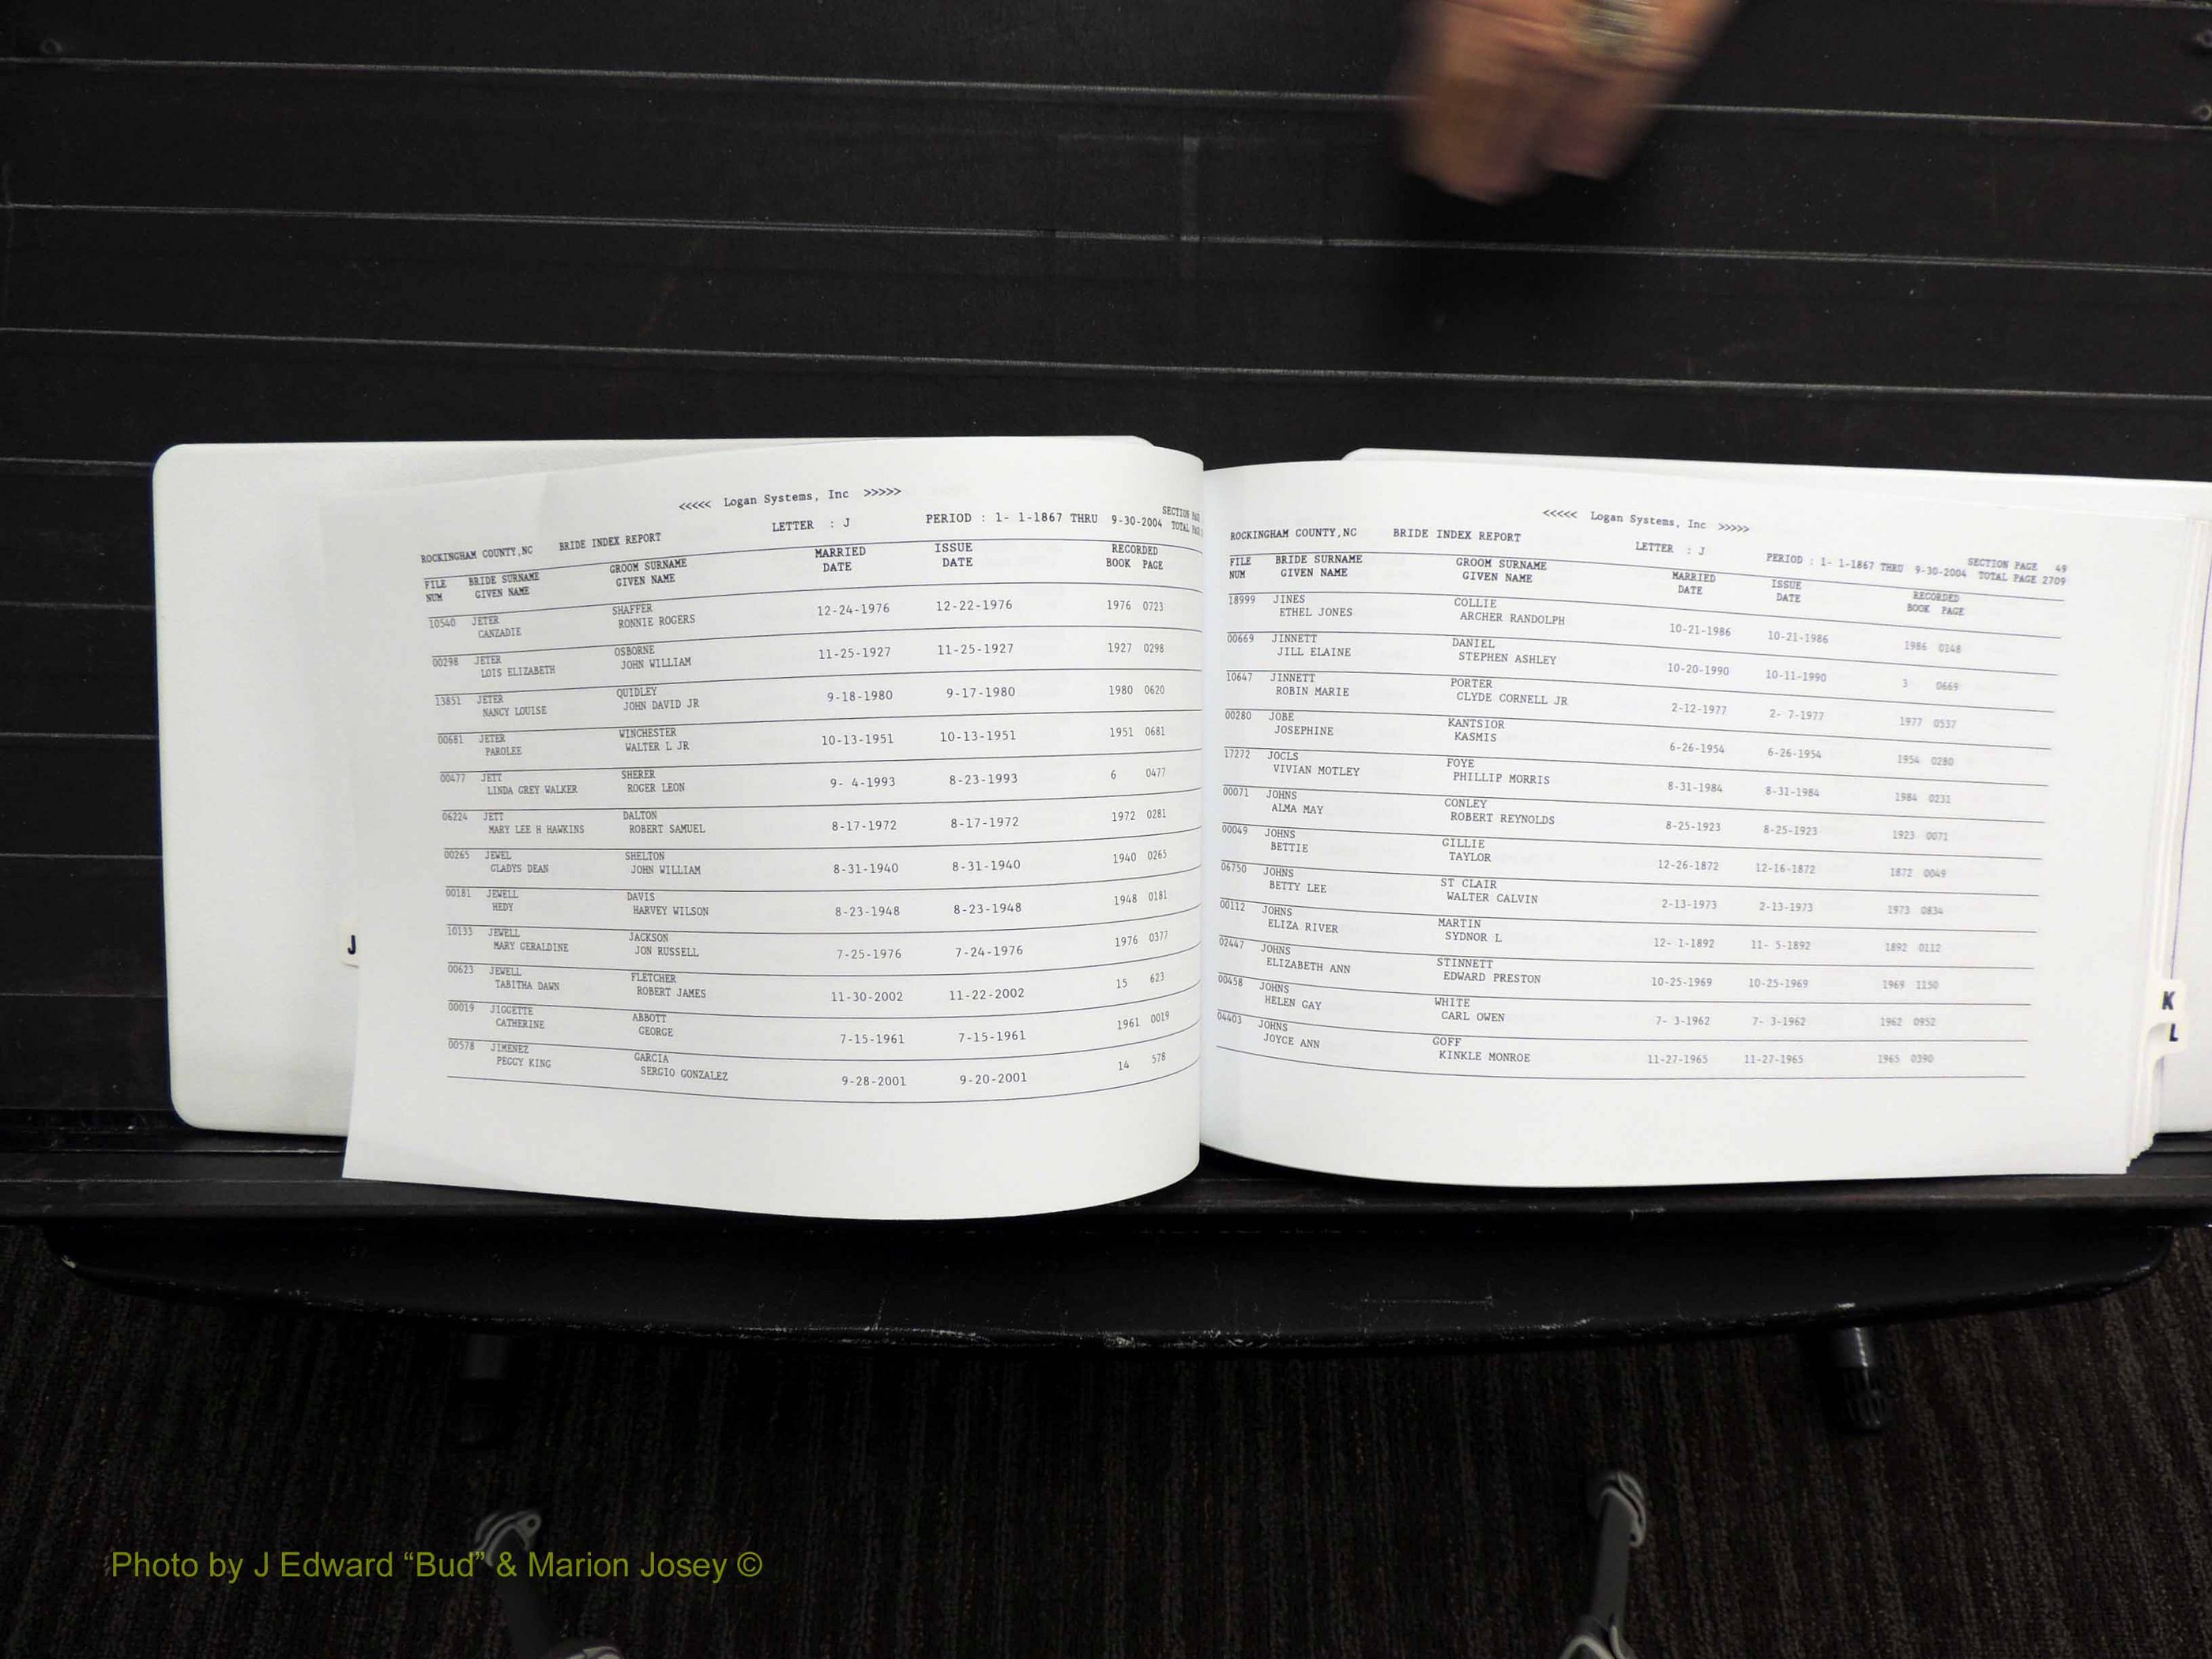 <<<<< Logan Systems, Inc >>>>>
ROCKINGHAM COUNTY,NC BRIDE INDEX REPORT LETTER : J PERIOD : 1- 1-1867 THRU 9-30-2004 SECTION
TOTAL
FILE BRIDE SURNAME GROOM SURNAME MARRIED ISSUE RECORDED
NUM GIVEN NAME GIVEN NAME DATE DATE BOOK PAGE
10540 JETER SHAFFER 12-24-1976 12-22-1976 1976 0723
CANZADIE RONNIE ROGERS
00298 JETER OSBORNE 11-25-1927 11-25-1927 1927 0298
LOIS ELIZABETH JOHN WILLIAM
13851 JETER QUIDLEY 9-18-1980 9-17-1980 1980 0620
NANCY LOUISE JOHN DAVID JR
00681 JETER WINCHESTER 10-13-1951 10-13-1951 1951 0681
PAROLEE WALTER L JR
00477 JETT SHERER 9- 4-1993 8-23-1993 6 0477
LINDA GREY WALKER ROGER LEON
06224 JETT DALTON 8-17-1972 8-17-1972 1972 0281
MARY LEE H HAWKINS ROBERT SAMUEL
00265 JEWEL SHELTON 8-31-1940 8-31-1940 1940 0265
GLADYS DEAN JOHN WILLIAM
00181 JEWELL DAVIS 8-23-1948 8-23-1948 1948 0181
HEDY HARVEY WILSON
10133 JEWELL JACKSON 7-25-1976 7-24-1976 1976 0377
MARY GERALDINE JON RUSSELL
00623 JEWELL FLETCHER 11-30-2002 11-22-2002 15 623
TABITHA DAWN ROBERT JAMES
00019 JIGGETTE ABBOTT 7-15-1961 7-15-1961 1961 0019
CATHERINE GEORGE
00578 JIMENEZ GARCIA 9-28-2001 9-20-2001 14 578
PEGGY KING SERGIO GONZALEZ
J
<<<<< Logan Systems, Inc >>>>>
ROCKINGHAM COUNTY,NC BRIDE INDEX REPORT LETTER : J PERIOD : 1- 1-1867 THRU 9-30-2004 SECTION PAGE 49
TOTAL PAGE 2709
FILE BRIDE SURNAME GROOM SURNAME MARRIED ISSUE RECORDED
NUM GIVEN NAME GIVEN NAME DATE DATE BOOK PAGE
18999 JINES COLLIE 10-21-1986 10-21-1986 1986 0148
ETHEL JONES ARCHER RANDOLPH
00669 JINNETT DANIEL 10-20-1990 10-11-1990 3 0669
JILL ELAINE STEPHEN ASHLEY
10647 JINNETT PORTER 2-12-1977 2- 7-1977 1977 0537
ROBIN MARIE CLYDE CORNELL JR
00280 JOBE KANTSIOR 6-26-1954 6-26-1954 1954 0280
JOSEPHINE KASMIS
17272 JOCLS FOYE 8-31-1984 8-31-1984 1984 0231
VIVIAN MOTLEY PHILLIP MORRIS
00071 JOHNS CONLEY 8-25-1923 8-25-1923 1923 0071
ALMA MAY ROBERT REYNOLDS
00049 JOHNS GILLIE 12-26-1872 12-16-1872 1872 0049
BETTIE TAYLOR
06750 JOHNS ST CLAIR 2-13-1973 2-13-1973 1973 0834
BETTY LEE WALTER CALVIN
00112 JOHNS MARTIN 12- 1-1892 11- 5-1892 1892 0112
ELIZA RIVER SYDNOR L
02447 JOHNS STINNETT 10-25-1969 10-25-1969 1969 1150
ELIZABETH ANN EDWARD PRESTON
00458 JOHNS WHITE 7- 3-1962 7- 3-1962 1962 0952
HELEN GAY CARL OWEN
04403 JOHNS GOFF 11-27-1965 11-27-1965 1965 0390
JOYCE ANN KINKLE MONROE
K
L
Photo by J Edward “Bud” & Marion Josey ©